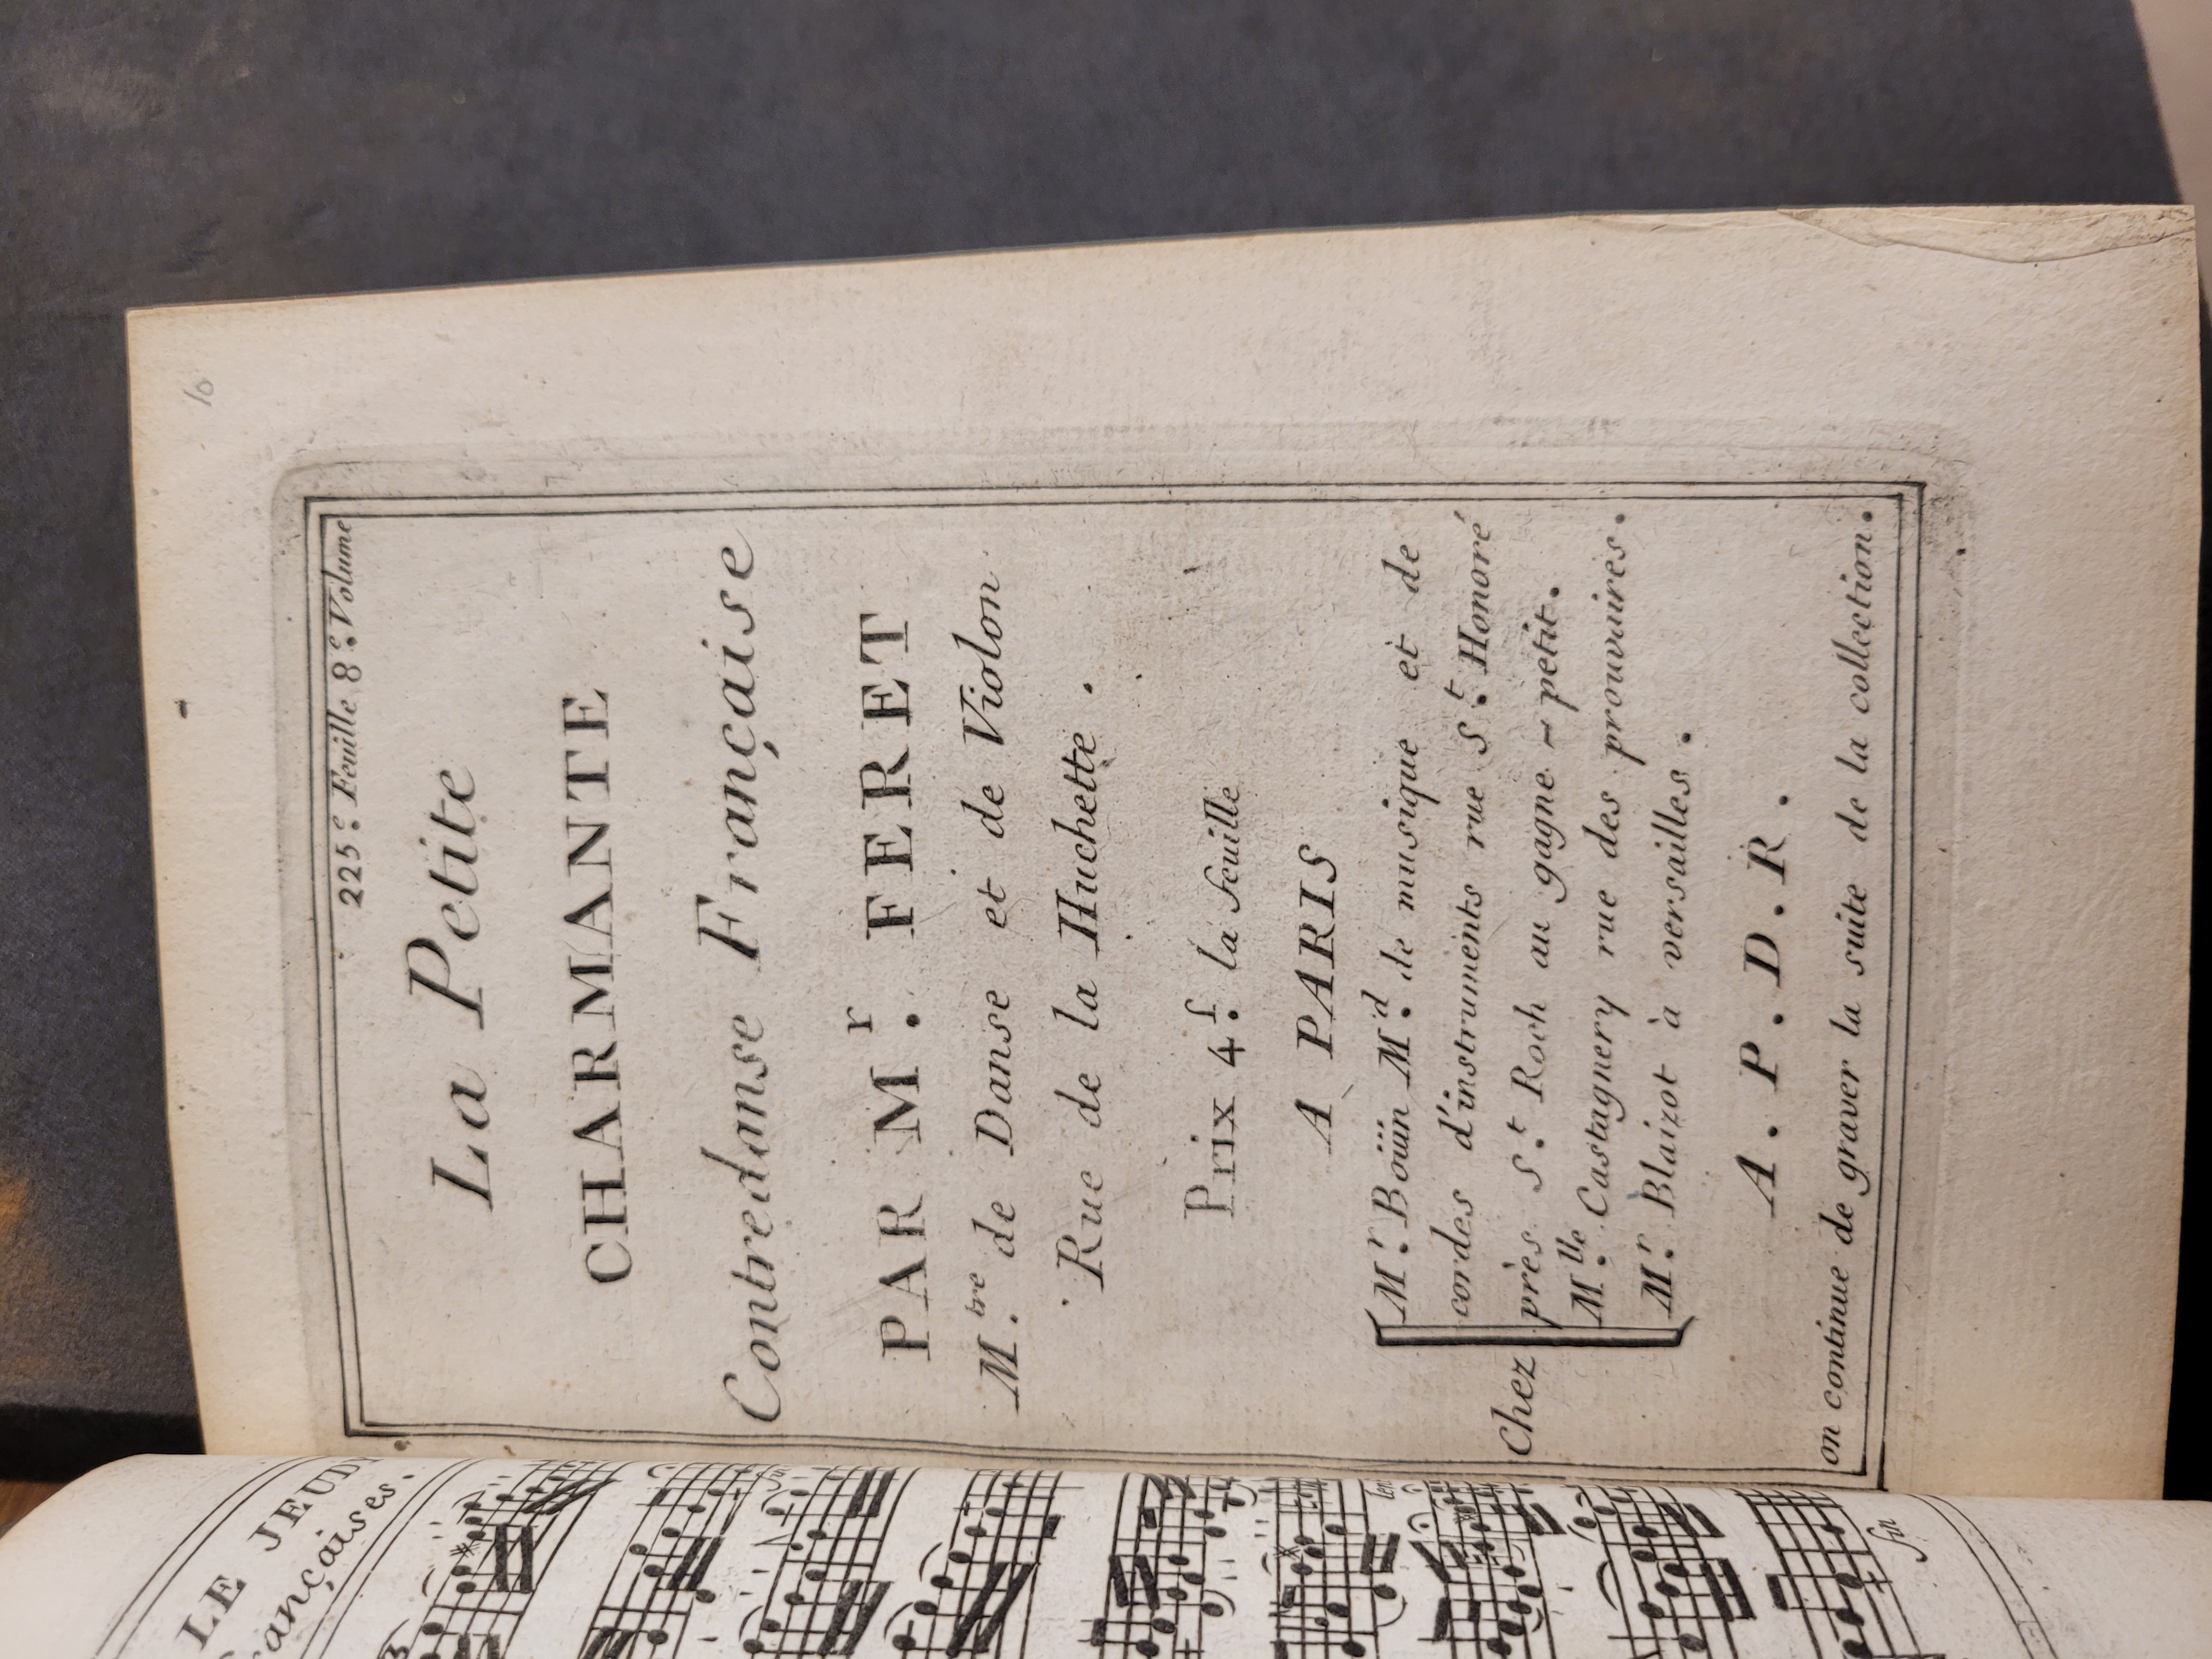 10
225.e Feuille 8.e Volume
La Petite
CHARMANTE
Contredanse Française
PAR M.r FERET
M.tre de Danse et de Violon
Rue de la Huchette.
Prix 4.f la feuille
A PARIS
Chez
M.r Boüin M.d de musique et de
cordes d'instruments rue S.t Honoré
près S.t Roch au gagne - petit.
M.lle Castagnery rue des prouvaires.
M.r Blaizot à versailles.
A. P. D. R.
on continue de graver la suite de la collection.
LE JEUDI
rançaises.
fin